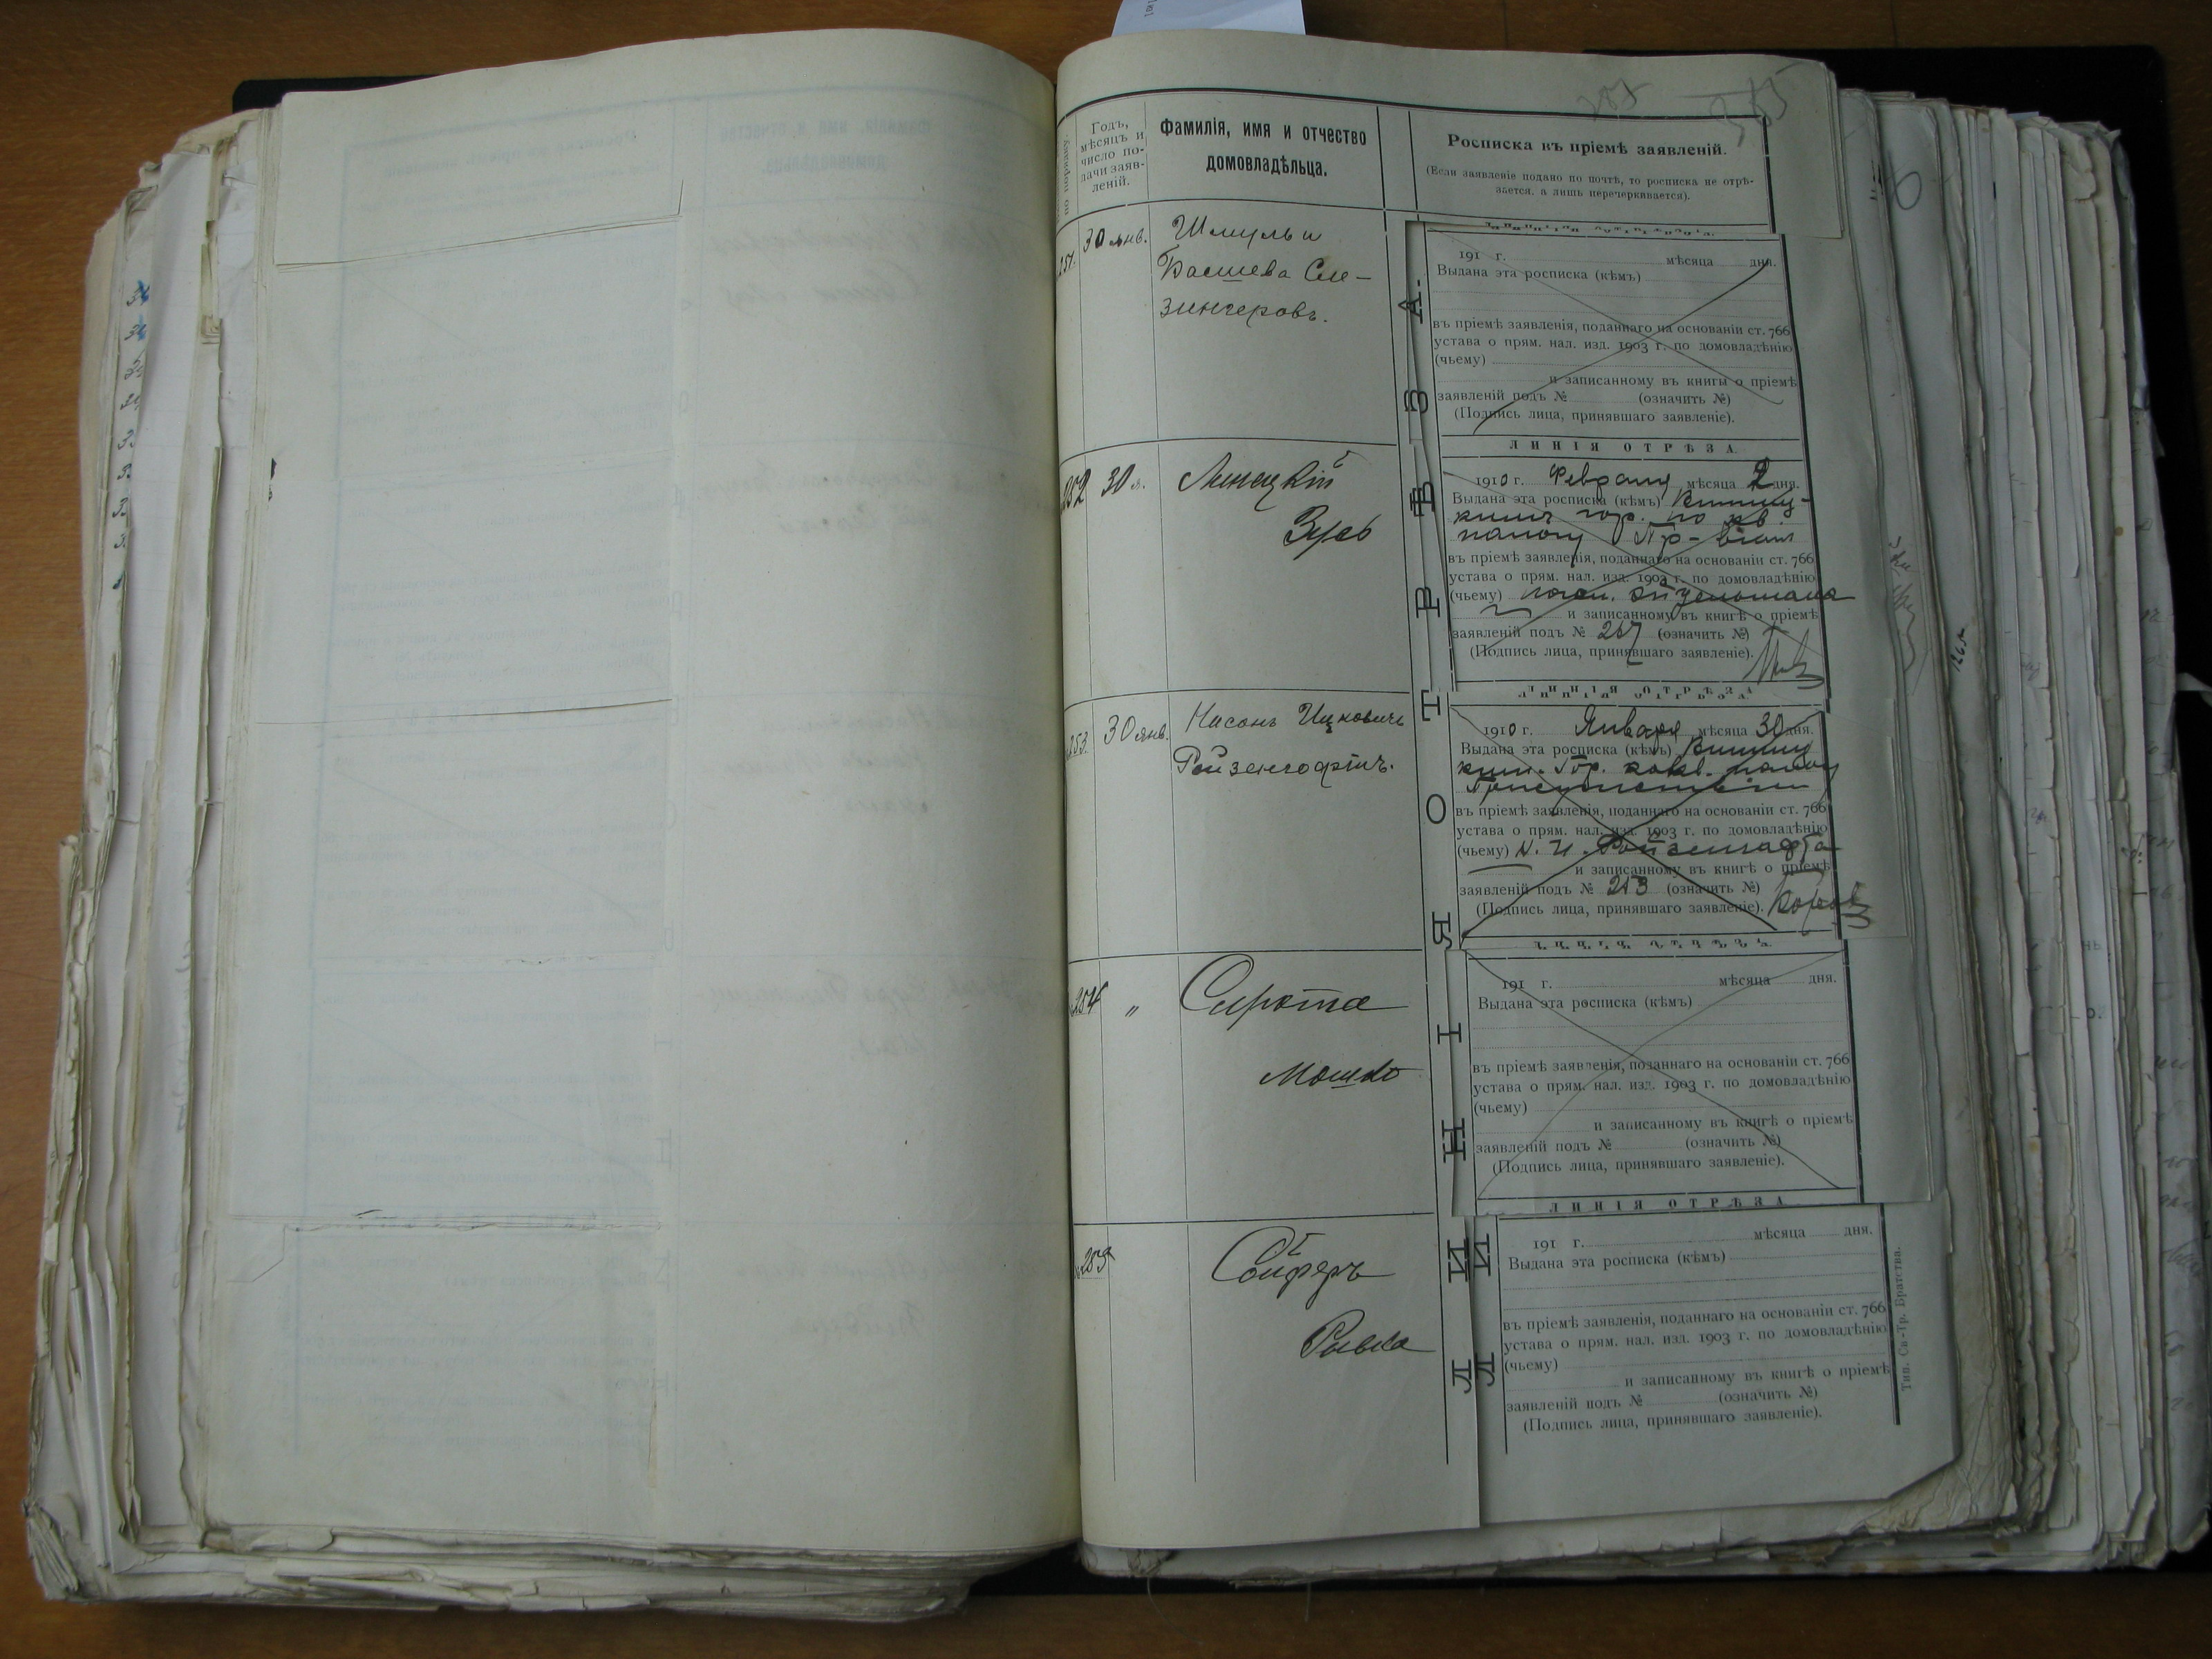 205 365
по порядку.
Годъ,
мѣсяцъ и
число по-
дачи заяв-
леній.
Фамилія, имя и отчество
домовладѣльца.
Росписка въ пріемѣ заявленій.
(Если заявленіе подано по почтѣ, то росписка не отрѣ-
зается, а лишь перечеркивается).
251. 30 янв. Шмуль и
Басшева Сле-
зингеровъ.
191 г. мѣсяца дня.
Выдана эта росписка (кѣмъ)
въ пріемѣ заявленія, поданнаго на основаніи ст. 766
устава о прям. нал. изд. 1903 г. по домовладѣнію
(чьему)
и записанному въ книгы о пріемѣ
заявленій подъ № (означить №)
(Подпись лица, принявшаго заявленіе).
ЛИНІЯ ОТРѢЗА
252 30 я. Линецкій
Зусь
1910 г. Февраля мѣсяца 2 дня.
Выдана эта росписка (кѣмъ) Винниц-
гор. по кв.
налогу
въ пріемѣ заявленія, поданнаго на основаніи ст. 766
устава о прям. нал. изд. 1903 г. по домовладѣнію
(чьему)
и записанному въ книгѣ о пріемѣ
заявленій подъ № 267 (означить №)
(Подпись лица, принявшаго заявленіе).
ЛИНІЯ ОТРѢЗА
253. 30 янв. Нисонъ Ицковичъ
Ройзенгафтъ.
1910 г. Января мѣсяца 30 дня.
Выдана эта росписка (кѣмъ) Винниц
ким. Гор. по кв. налогу
Присутствіем
въ пріемѣ заявленія, поданнаго на основаніи ст. 766
устава о прям. нал. изд. 1903 г. по домовладѣнію
(чьему) Н. И. Ройзенгафта
и записанному въ книгѣ о пріемѣ
заявленій подъ № 253 (означить №)
(Подпись лица, принявшаго заявленіе).
254 " Сирота
Мошко
191 г. мѣсяца дня.
Выдана эта росписка (кѣмъ)
въ пріемѣ заявленія, поданнаго на основаніи ст. 766
устава о прям. нал. изд. 1903 г. по домовладѣнію
(чьему)
и записанному въ книгѣ о пріемѣ
заявленій подъ № (означить №)
(Подпись лица, принявшаго заявленіе).
ЛИНІЯ ОТРѢЗА
255 Сойферъ
Рывка
191 г. мѣсяца дня.
Выдана эта росписка (кѣмъ)
въ пріемѣ заявленія, поданнаго на основаніи ст. 766
устава о прям. нал. изд. 1903 г. по домовладѣнію
(чьему)
и записанному въ книгѣ о пріемѣ
заявленій подъ № (означить №)
(Подпись лица, принявшаго заявленіе).
ЛИНІЯ ОТРѢЗА.
Тип. Св.-Тр. Братства.